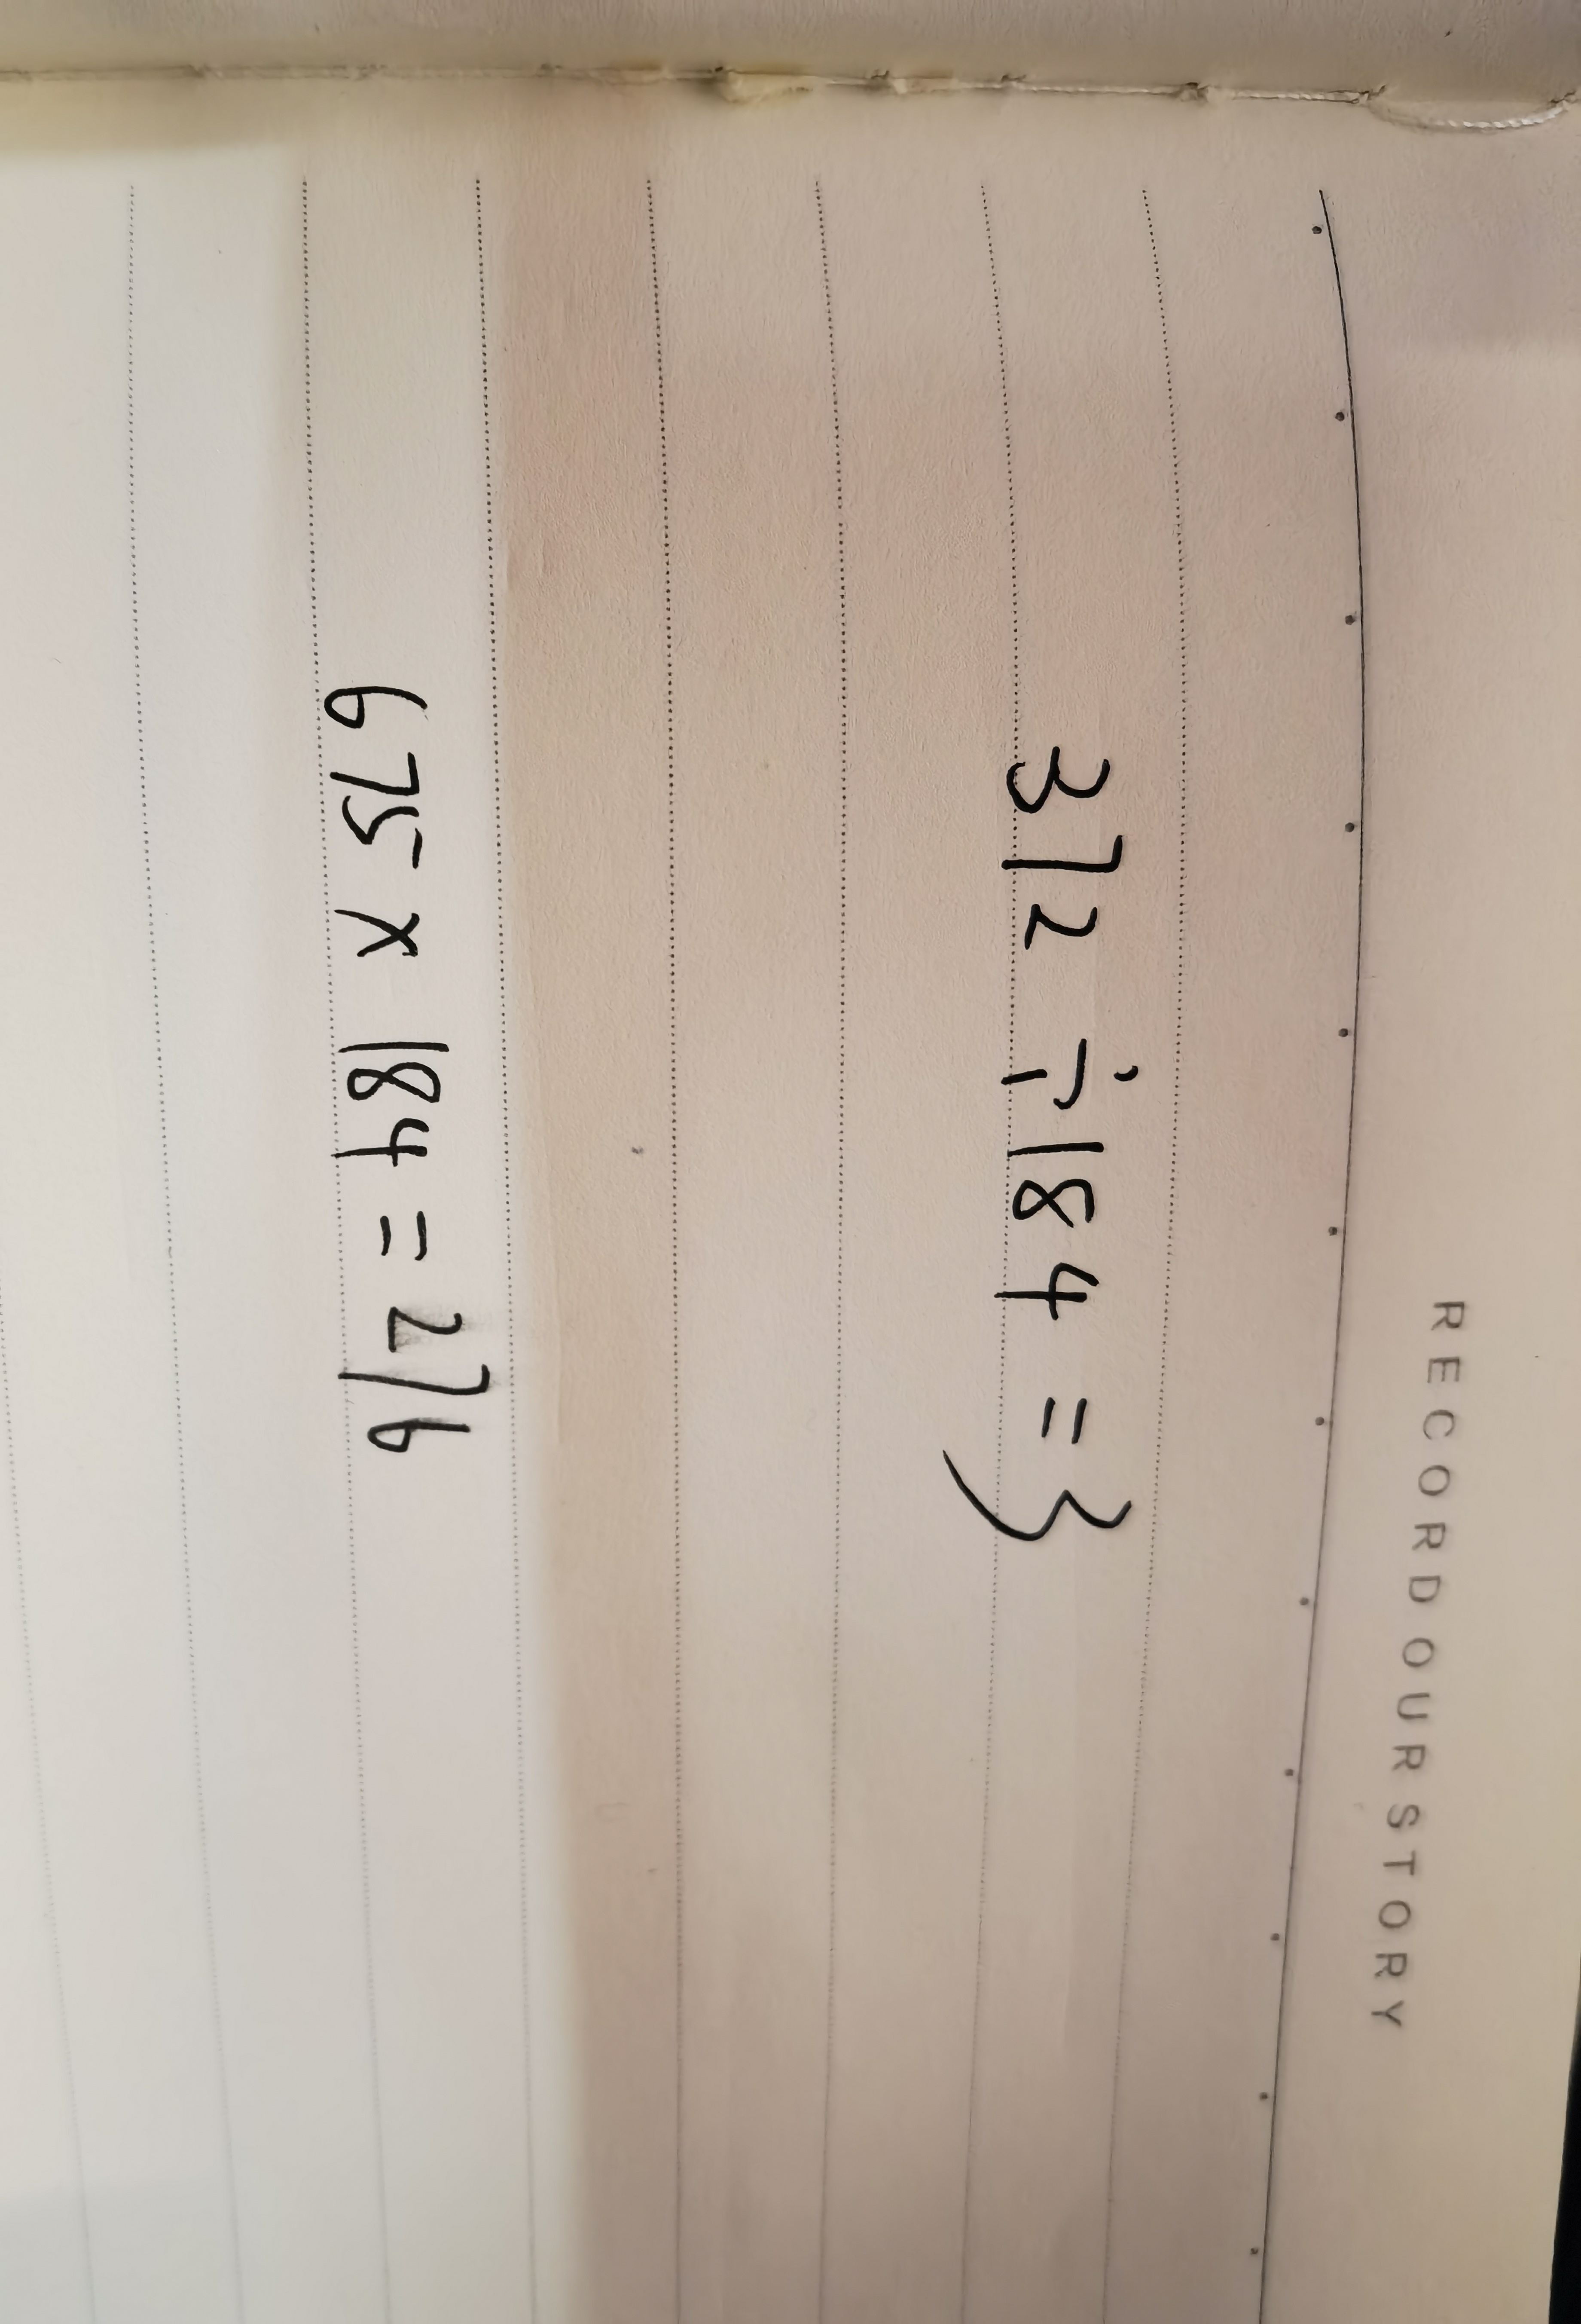 RECORD OUR STORY
372 ÷ 184 = 3
675 × 184 = 276